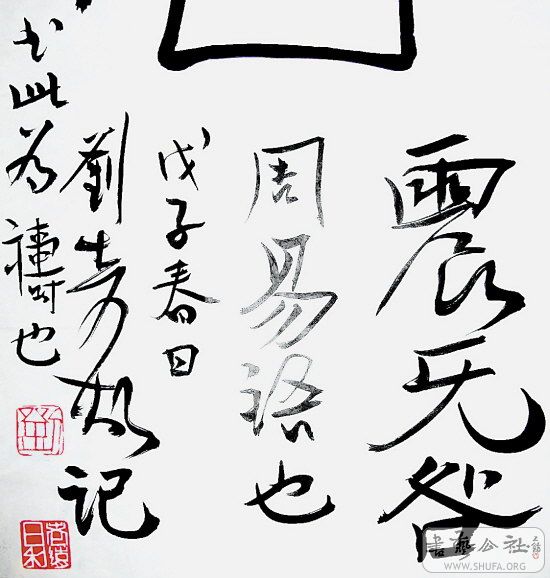 震无咎
周易语也
戊子春日
劉记
书此为也
書艺公社
WWW.SHUFA.ORG